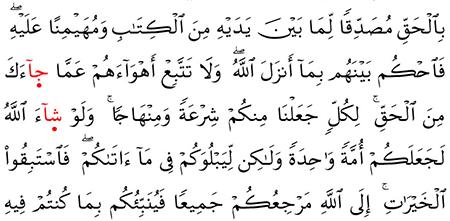 بِٱلْحَقِّ مُصَدِّقًا لِّمَا بَيْنَ يَدَيْهِ مِنَ ٱلْكِتَٰبِ وَمُهَيْمِنًا عَلَيْهِ ۖ
فَٱحْكُم بَيْنَهُم بِمَآ أَنزَلَ ٱللَّهُ ۖ وَلَا تَتَّبِعْ أَهْوَآءَهُمْ عَمَّا جَآءَكَ
مِنَ ٱلْحَقِّ ۚ لِكُلٍّ جَعَلْنَا مِنكُمْ شِرْعَةً وَمِنْهَاجًا ۚ وَلَوْ شَآءَ ٱللَّهُ
لَجَعَلَكُمْ أُمَّةً وَٰحِدَةً وَلَٰكِن لِّيَبْلُوَكُمْ فِى مَآ ءَاتَىٰكُمْ ۖ فَٱسْتَبِقُوا۟
ٱلْخَيْرَٰتِ ۚ إِلَى ٱللَّهِ مَرْجِعُكُمْ جَمِيعًا فَيُنَبِّئُكُم بِمَا كُنتُمْ فِيهِ